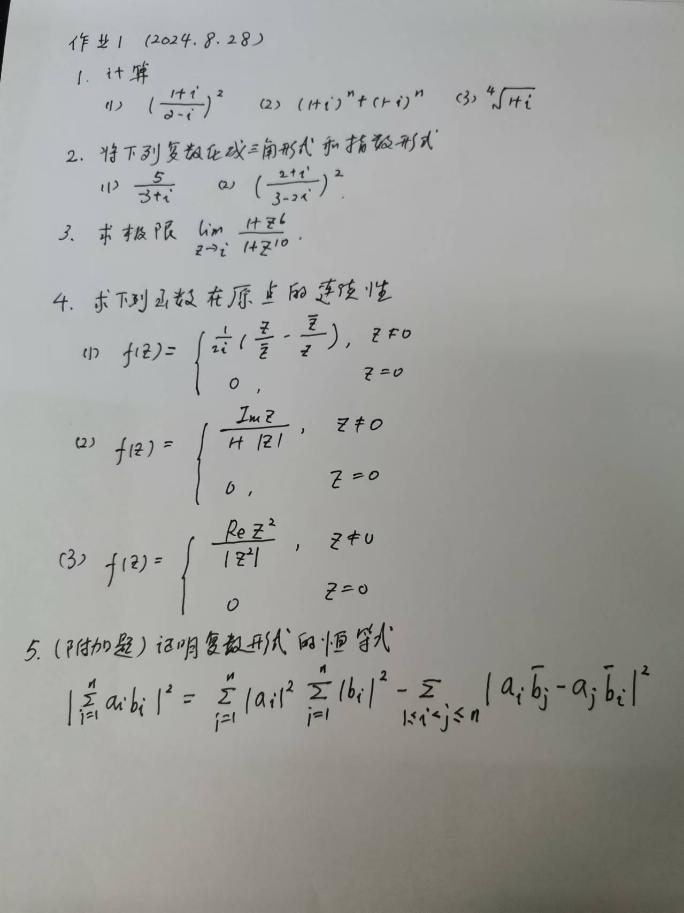 作业1 (2024.8.28)
1. 计算
(1) (\frac{1+i}{2-i})^2 (2) (1+i)^n+(1-i)^n (3) \sqrt[4]{1+i}
2. 将下列复数化成三角形式和指数形式
(1) \frac{5}{3+i} (2) (\frac{2+i}{3-2i})^2.
3. 求极限 \lim_{z→i} \frac{1+z^6}{1+z^{10}}.
4. 求下列函数在原点的连续性
(1) f(z)= { \frac{1}{2i}(\frac{z}{\bar{z}} - \frac{\bar{z}}{z}), z≠0
0, z=0
(2) f(z)= { \frac{Im z}{1+|z|}, z≠0
0, z=0
(3) f(z)= { \frac{Re z^2}{|z^2|}, z≠0
0 z=0
5. (附加题) 证明复数形式的恒等式
|\sum_{i=1}^{n} a_i b_i|^2 = \sum_{i=1}^{n} |a_i|^2 \sum_{i=1}^{n} |b_i|^2 - \sum_{1≤i<j≤n} |a_i \bar{b}_j - a_j \bar{b}_i|^2